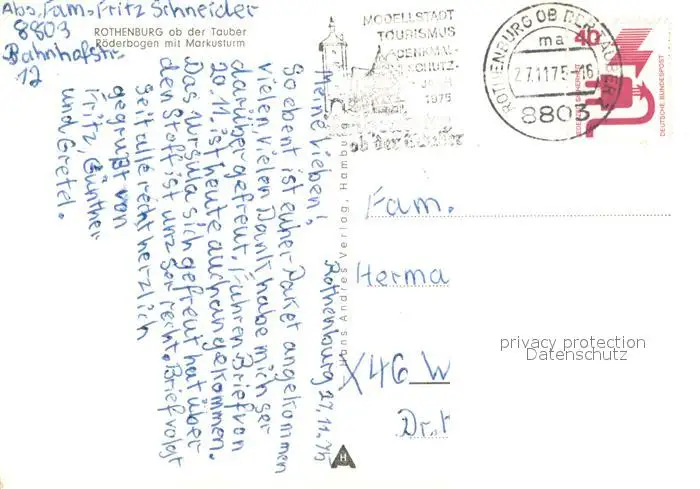 Abs. Fam. Fritz Schneider
8803
Bahnhofstr.
12
ROTHENBURG ob der Tauber
Röderbogen mit Markusturm
MODELLSTADT
TOURISMUS
DENKMAL-
SCHUTZ-
1975
ob der Tauber
ROTHENBURG OB DER TAUBER
ma
27.11.75-16
8803
40
JEDERZEIT SICHERHEIT
DEUTSCHE BUNDESPOST
Rothenburg 27.11.75
Meine Lieben!
So ebent ist euher Paket angekommen
vielen, vielen Dank habe mich ser
darüber gefreut. Führen Brief von
20.11. ist heute auch angekommen.
Das Ursula sich gefreut hat über
den Stoff ist unz ser recht. Brief volgt
Seit alle recht herzlich
gegrüßt von
Fritz, Günther
und Gretel.
Hans Andres Verlag, Hamburg
H
Fam.
Herma
X46 W
Dr.
privacy protection
Datenschutz